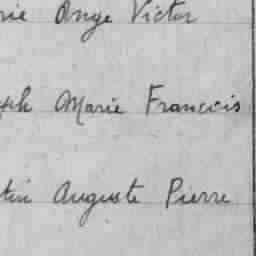 rie Ange Victor
eph Marie Francois
tin Auguste Pierre